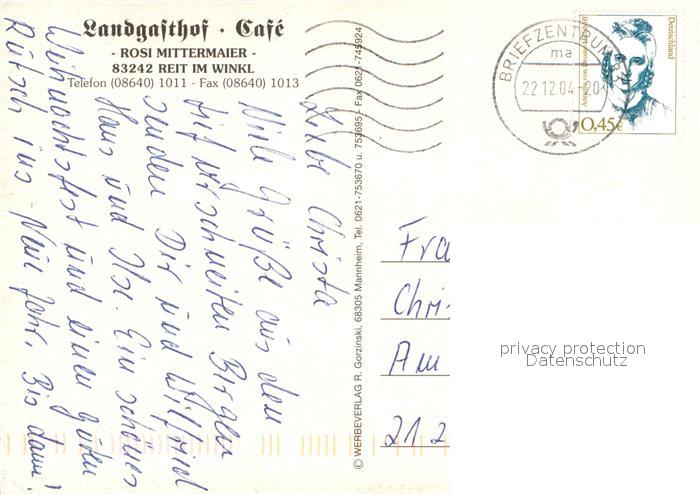 Landgasthof · Café
- ROSI MITTERMAIER -
83242 REIT IM WINKL
Telefon (08640) 1011 - Fax (08640) 1013
Liebe Christa
Viele Grüße aus den
tief verschneiten Bergen
senden Dir und Wilfried
Hans und Ilse. Ein schönes
Weihnachtsfest und einen guten
Rutsch ins Neue Jahr. Bis dann!
© WERBEVERLAG R. Gorzinski, 68305 Mannheim, Tel. 0621-753670 u. 753695 - Fax 0621-745924
BRIEFZENTRUM
ma
22.12.04-20
Deutschland
0,45€
Fra
Chri
Am
21 2
privacy protection
Datenschutz